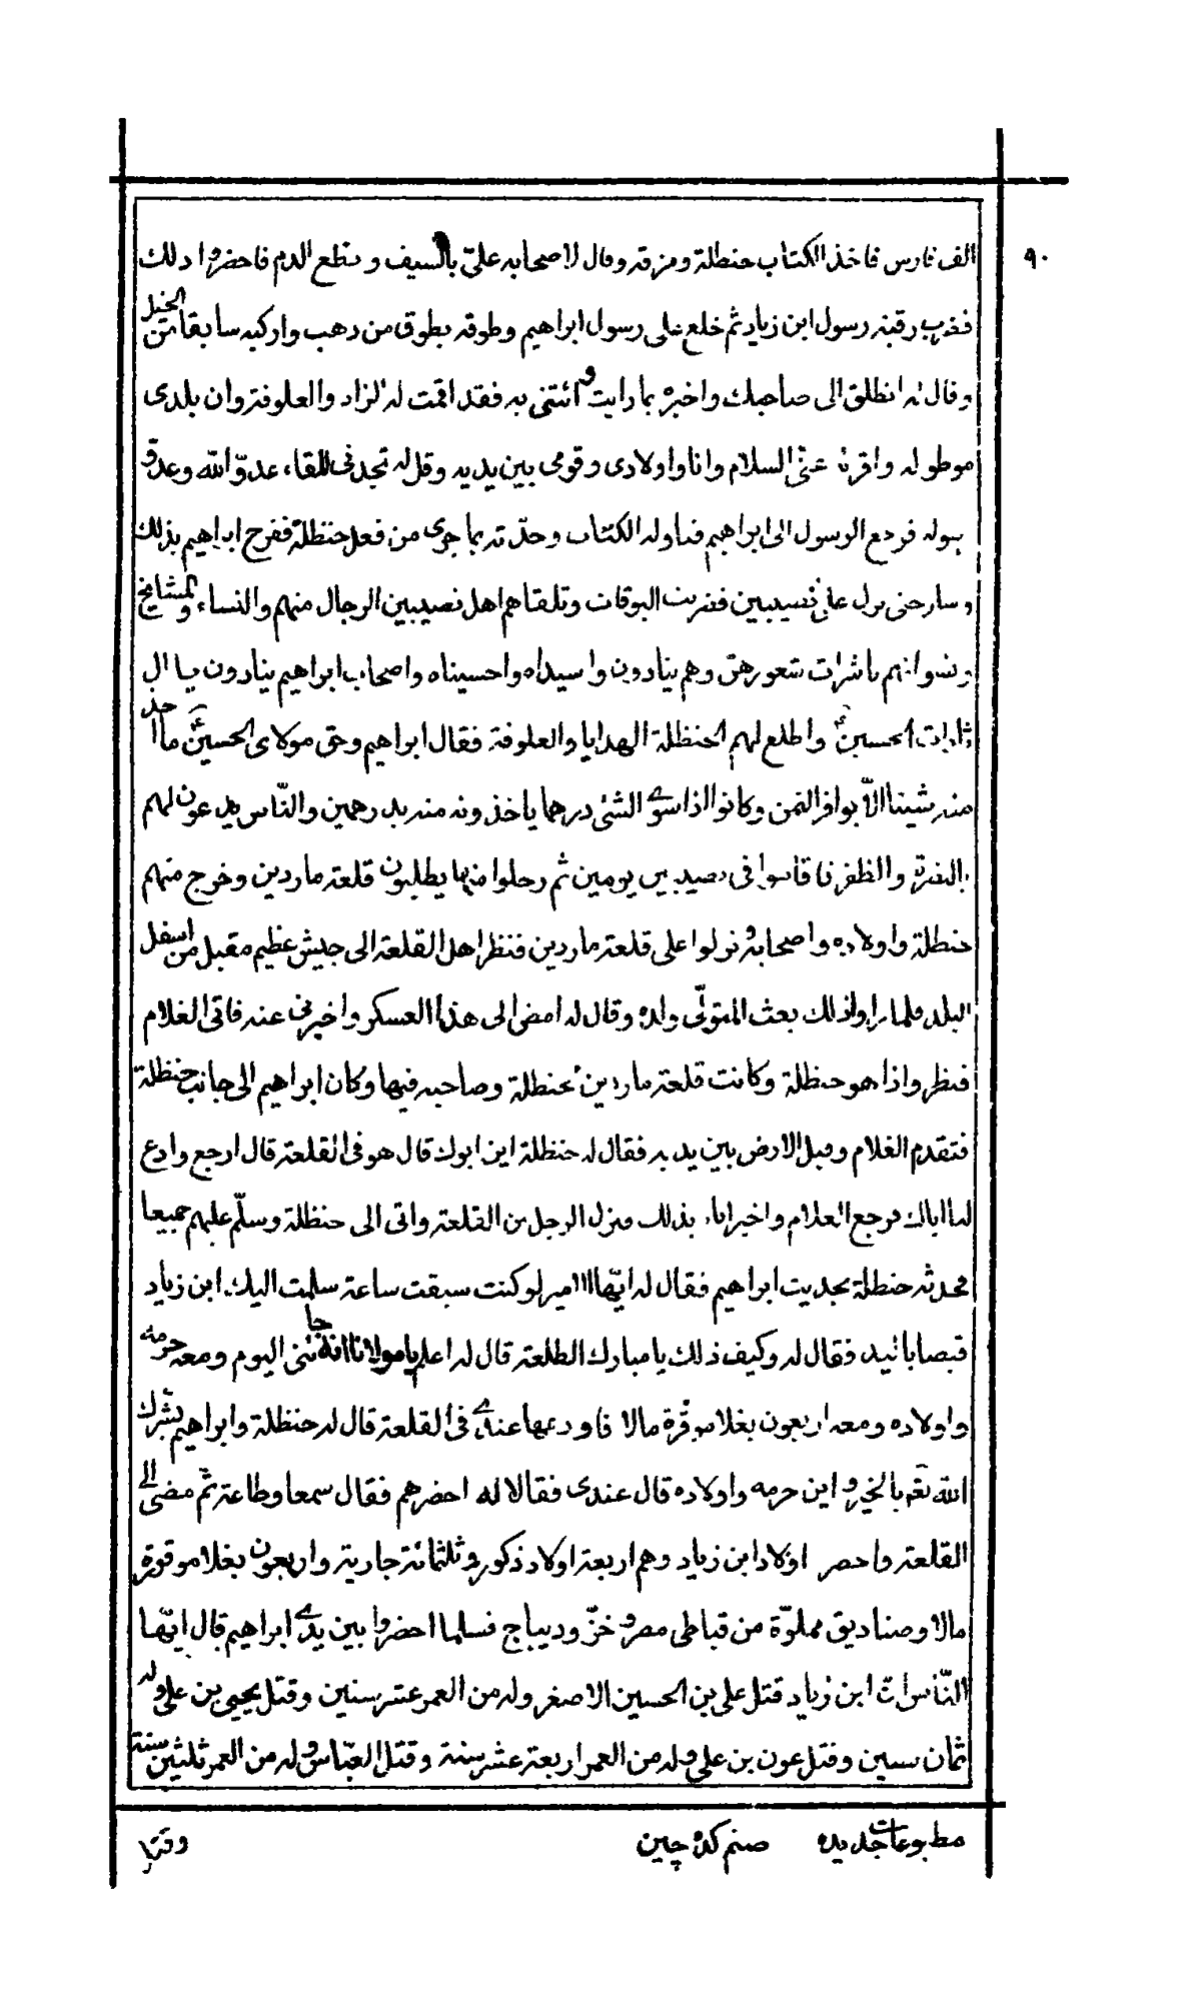 ٩٠
الف فارس فاخذ الكتاب حنظلة ومزقه وقال لاصحابه علىّ بالسيف ونطع الدم فاحضروا ذلك
فضرب رقبته رسول ابن زياد ثم خلع على رسول ابراهيم وطوقه بطوق من ذهب واركبه سابقا من الخيل
وقال له انطلق الى صاحبك واخبره بما رايت وائتنى به فقد اقمت له الزاد والعلوفة وان بلدى
موطوله واقرئه عنى السلام وانا واولادى وقومى بين يديه وقل له تجدنى للقاء عدوّ الله وعدو
رسوله فرجع الرسول الى ابراهيم فناوله الكتاب وحدّثه بما جرى من فعل حنظلة ففرح ابراهيم بذلك
وسار حتى نزل على نصيبين فضربت البوقات وتلقاهم اهل نصيبين الرجال منهم والنساء والمشايخ
ونسوانهم ناشرات شعورهنّ وهم ينادون وا سيداه واحسيناه واصحاب ابراهيم ينادون يا ال
ثارات الحسينؑ واطلع لهم الحنظلة الهدايا والعلوفة فقال ابراهيم وحق مولاى الحسينؑ ما اخذ
منه شيئا الاّ بوافر الثمن وكانوا اذا سوى الشئ درهما ياخذونه منه بدرهمين والنّاس يدعون لهم
بالنصرة والظفر فاقاموا فى نصيبين يومين ثم رحلوا منها يطلبون قلعة ماردين وخرج منهم
حنظلة واولاده واصحابه ونزلوا على قلعة ماردين فنظر اهل القلعة الى جيش عظيم مقبل من اسفل
البلد فلما راوا ذلك بعث المتولّى ولده وقال له امض الى هذا العسكر واخبرنى عنه فاتى الغلام
فنظر واذا هو حنظلة وكانت قلعة ماردين لحنظلة وصاحبه فيها وكان ابراهيم الى جانب حنظلة
فتقدم الغلام وقبل الارض بين يديه فقال له حنظلة اين ابوك قال هو فى القلعة قال ارجع وادع
لنا اباك فرجع الغلام واخبر اباه بذلك فنزل الرجل من القلعة واتى الى حنظلة وسلّم عليهم جميعا
فحدثه حنظلة بحديث ابراهيم فقال له ايّها الامير لو كنت سبقت ساعة سلمت اليك ابن زياد
قبضا باليد فقال له وكيف ذلك يا مبارك الطلعة قال له اعلم يا مولانا انه جائنى اليوم ومعه حرمه
واولاده ومعه اربعون بغلا موقرة مالا فاودعها عندى فى القلعة قال له حنظلة وابراهيم بشرك
الله بالخير واين حرمه واولاده قال عندى فقالا له احضرهم فقال سمعا وطاعة ثمّ مضى الى
القلعة واحضر اولاد ابن زياد وهم اربعة اولاد ذكور وثلثمائة جارية واربعون بغلا موقرة
مالا وصناديق مملوّة من قباطى مصر وخزّ وديباج فلما احضروا بين يدى ابراهيم قال ايّها
النّاس انّ ابن زياد قتل على بن الحسين الاصغر وله من العمر عشر سنين وقتل يحيى بن على وله
ثمان سنين وقتل عون بن على وله من العمر اربعة عشر سنة وقتل العبّاس وله من العمر ثلثين سنة
مطبوعات جديده صنم كدۀ چين